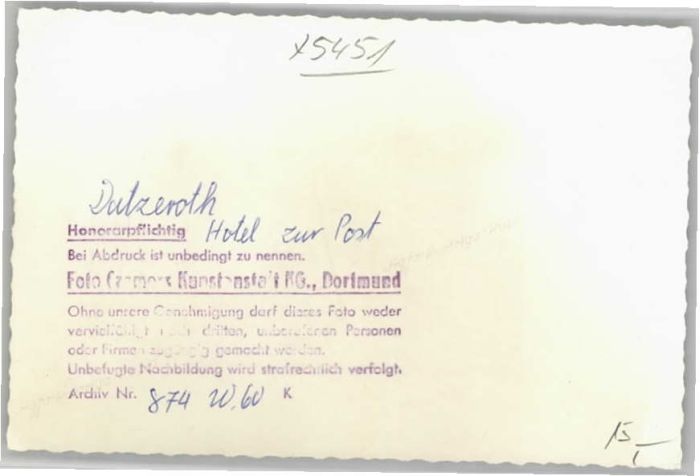 x5451
Datzeroth
Honorarpflichtig Hotel zur Post
Bei Abdruck ist unbedingt zu nennen.
Foto Cramers Kunstanstalt KG., Dortmund
Ohne unsere Genehmigung darf dieses Foto weder
vervielfältigt noch dritten, unberufenen Personen
oder Firmen zugängig gemacht werden.
Unbefugte Nachbildung wird strafrechtlich verfolgt.
Archiv Nr. 874 W.60 K
15,-